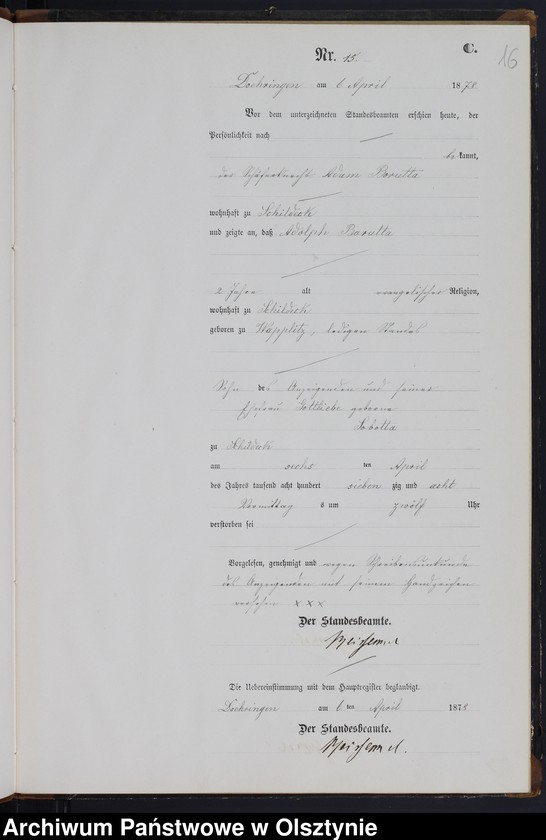 16
C.
Nr. 15.
Doehringen am 6 April 1878.
Vor dem unterzeichneten Standesbeamten erschien heute, der
Persönlichkeit nach
be kannt,
der Schäferknecht Adam Borutta
wohnhaft zu Schildeck
und zeigte an, daß Adolph Borutta
2 Jahre alt evangelischer Religion,
wohnhaft zu Schildeck
geboren zu Wapplitz, ledigen Standes
Sohn des Anzeigenden und seiner
Ehefrau Gottliebe geborne
Sobotta
zu Schildeck
am sechs ten April
des Jahres tausend acht hundert sieben zig und acht
Vormittag s um zwölf Uhr
verstorben sei
Vorgelesen, genehmigt und wegen Schreibensunkunde
des Anzeigenden mit seinem Handzeichen
versehen x x x
Der Standesbeamte.
Die Uebereinstimmung mit dem Hauptregister beglaubigt.
Doehringen am 6 ten April 1878
Der Standesbeamte.
Archiwum Państwowe w Olsztynie